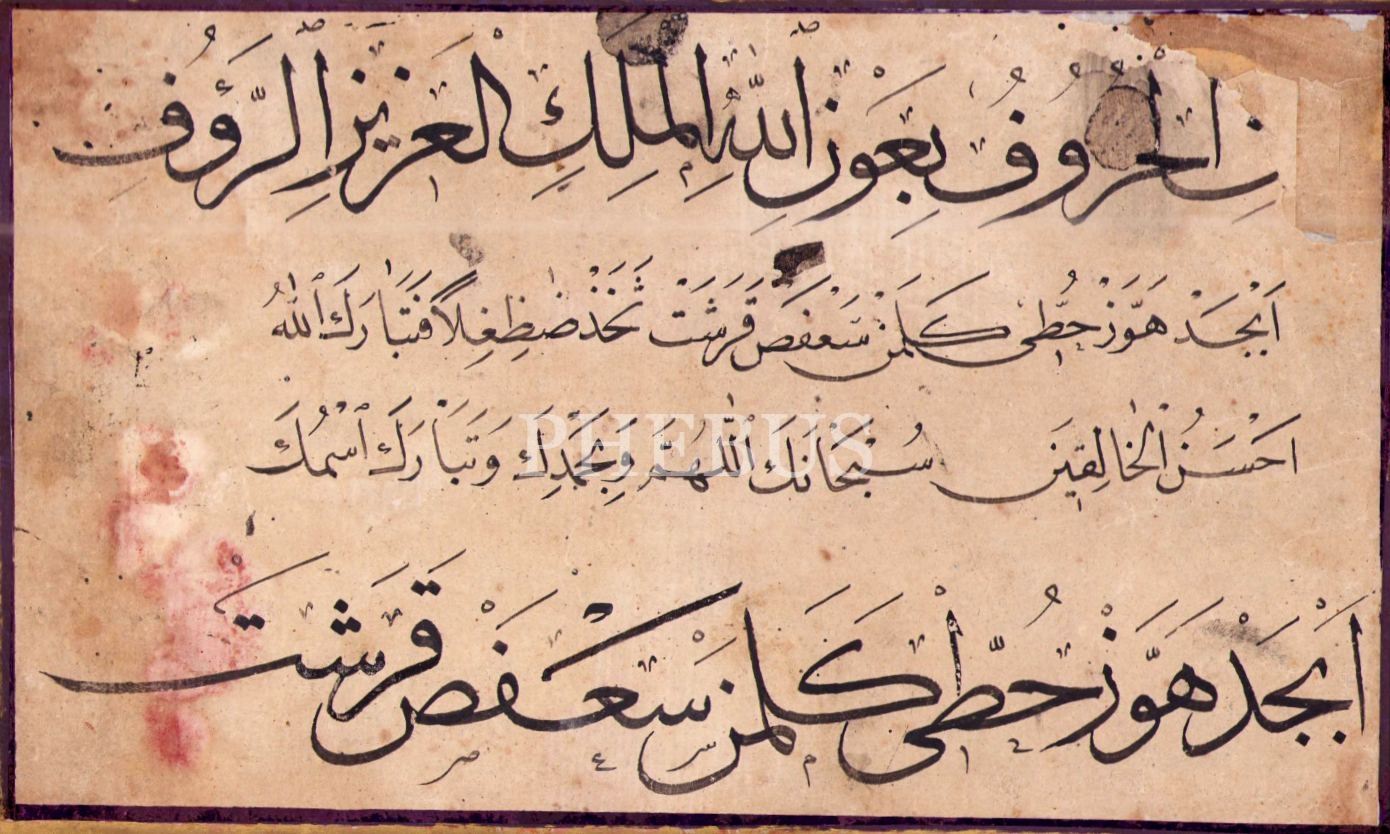 ـتِ الْحُرُوفُ بِعَوْنِ اللّٰهِ الْمَلِكِ الْعَزِيزِ الرَّؤُفِ
اَبْجَدْ هَوَّزْ حُطِّى كَلَمَنْ سَعْفَصْ قَرَشَتْ ثَخَذْ ضَظِغِلًا فَتَبَارَكَ اللّٰهُ
اَحْسَنُ الْخَالِقِينَ سُبْحَانَكَ اللّٰهُمَّ وَبِحَمْدِكَ وَتَبَارَكَ اسْمُكَ
PHEBUS
اَبْجَدْ هَوَّزْ حُطِّى كَلَمَنْ سَعْفَصْ قَرَشَتْ